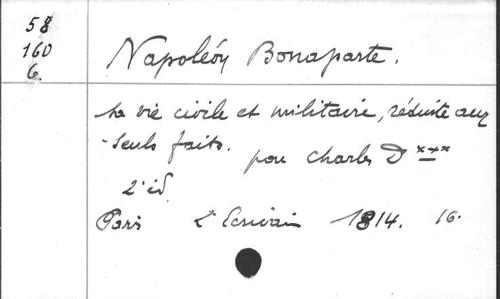 58
160
6.
Napoléon Bonaparte.
sa vie civile et militaire, réduite aux
seuls faits.
par Charles D ***
2e éd
Paris L'Ecrivain 1814. 16.